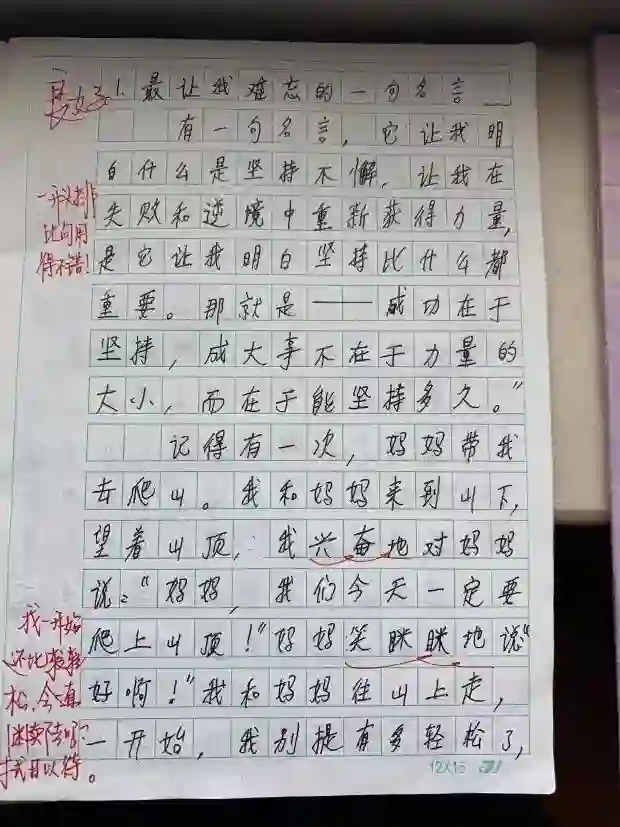 最让我难忘的一句名言
有一句名言，它让我明
白什么是坚持不懈，让我在
失败和逆境中重新获得力量，
是它让我明白坚持比什么都
重要。那就是——成功在于
坚持，成大事不在于力量的
大小，而在于能坚持多久。”
记得有一次，妈妈带我
去爬山。我和妈妈来到山下，
望着山顶，我兴奋地对妈妈
说：“妈妈，我们今天一定要
爬上山顶！”妈妈笑眯眯地说“
好啊！”我和妈妈往山上走，
一开始，我别提有多轻松了，
比句用
得不错！
我一开始
还比较轻
松，
12X15